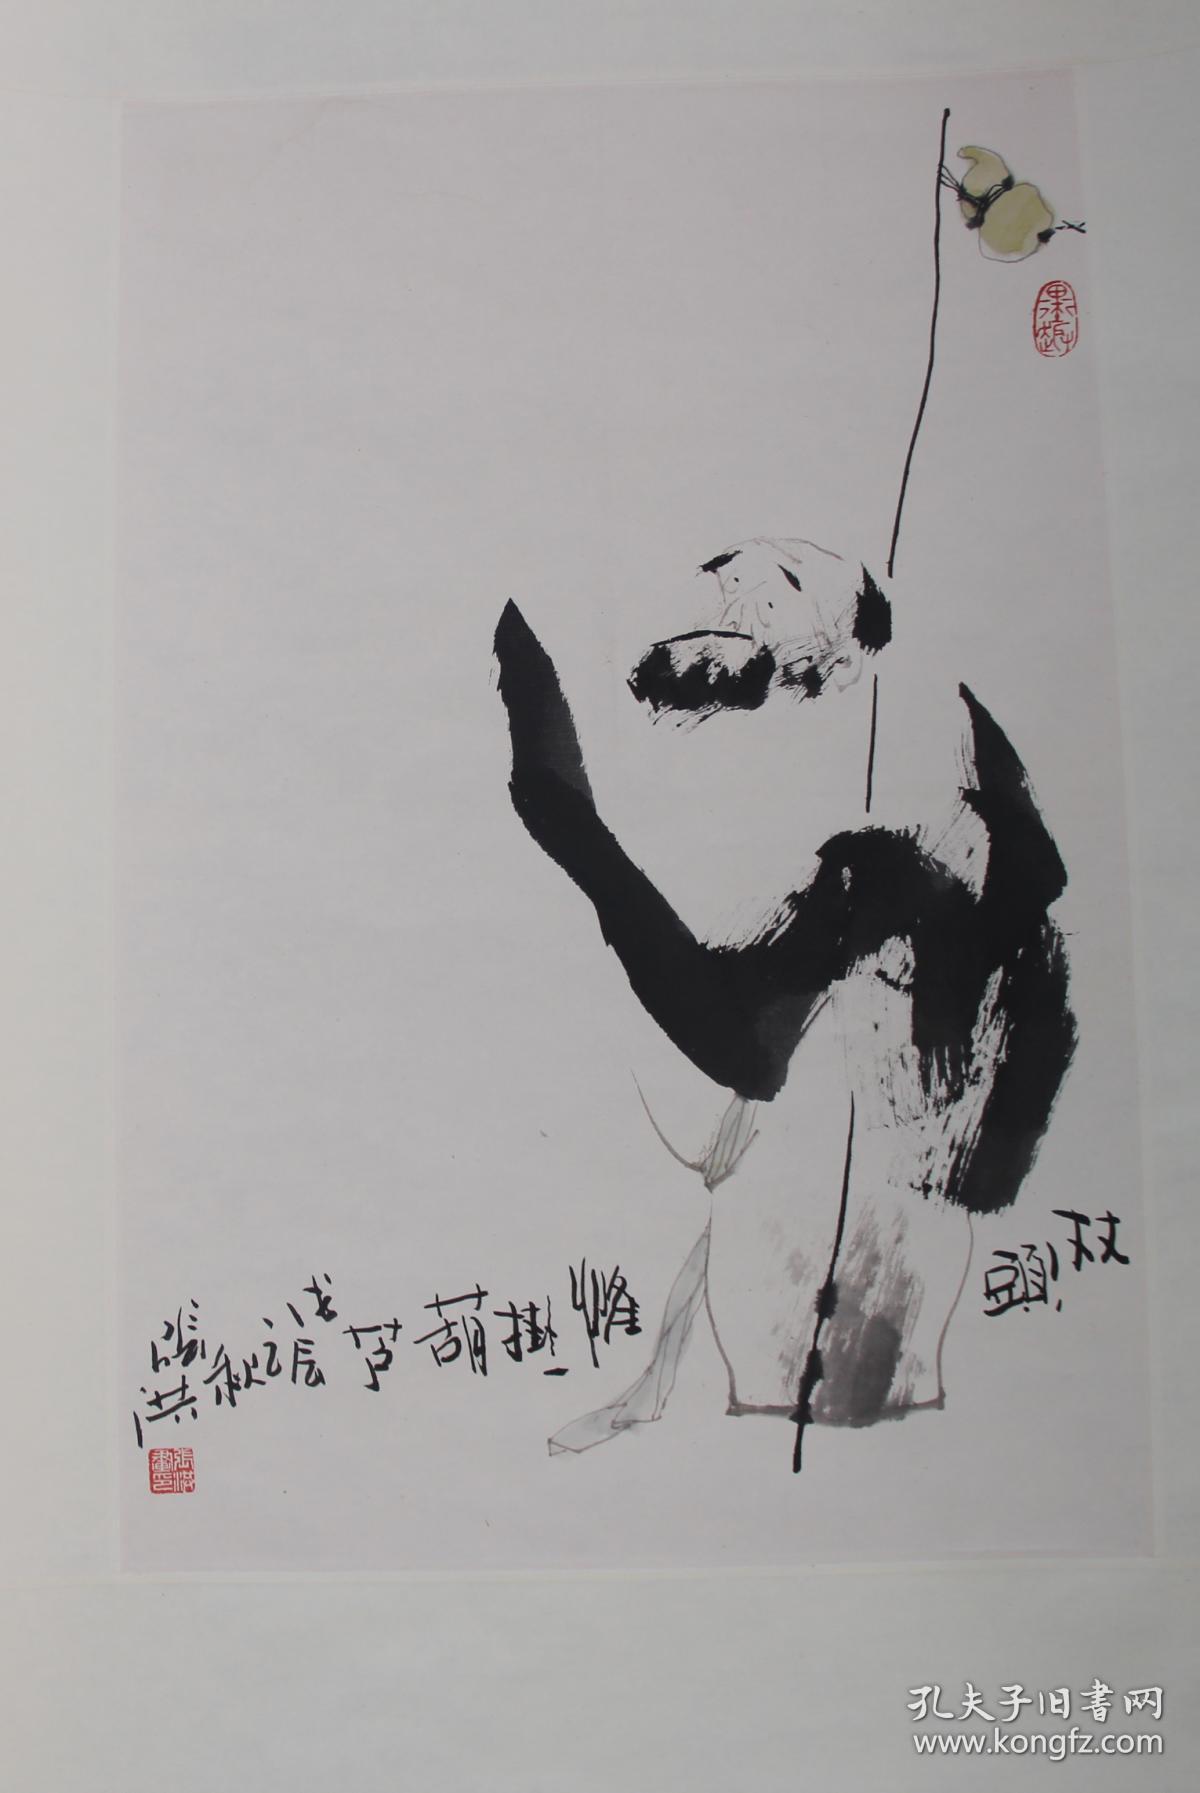 杖頭惟掛葫芦
戊辰之秋
張洪
張洪畫印
孔夫子旧書网
www.kongfz.com